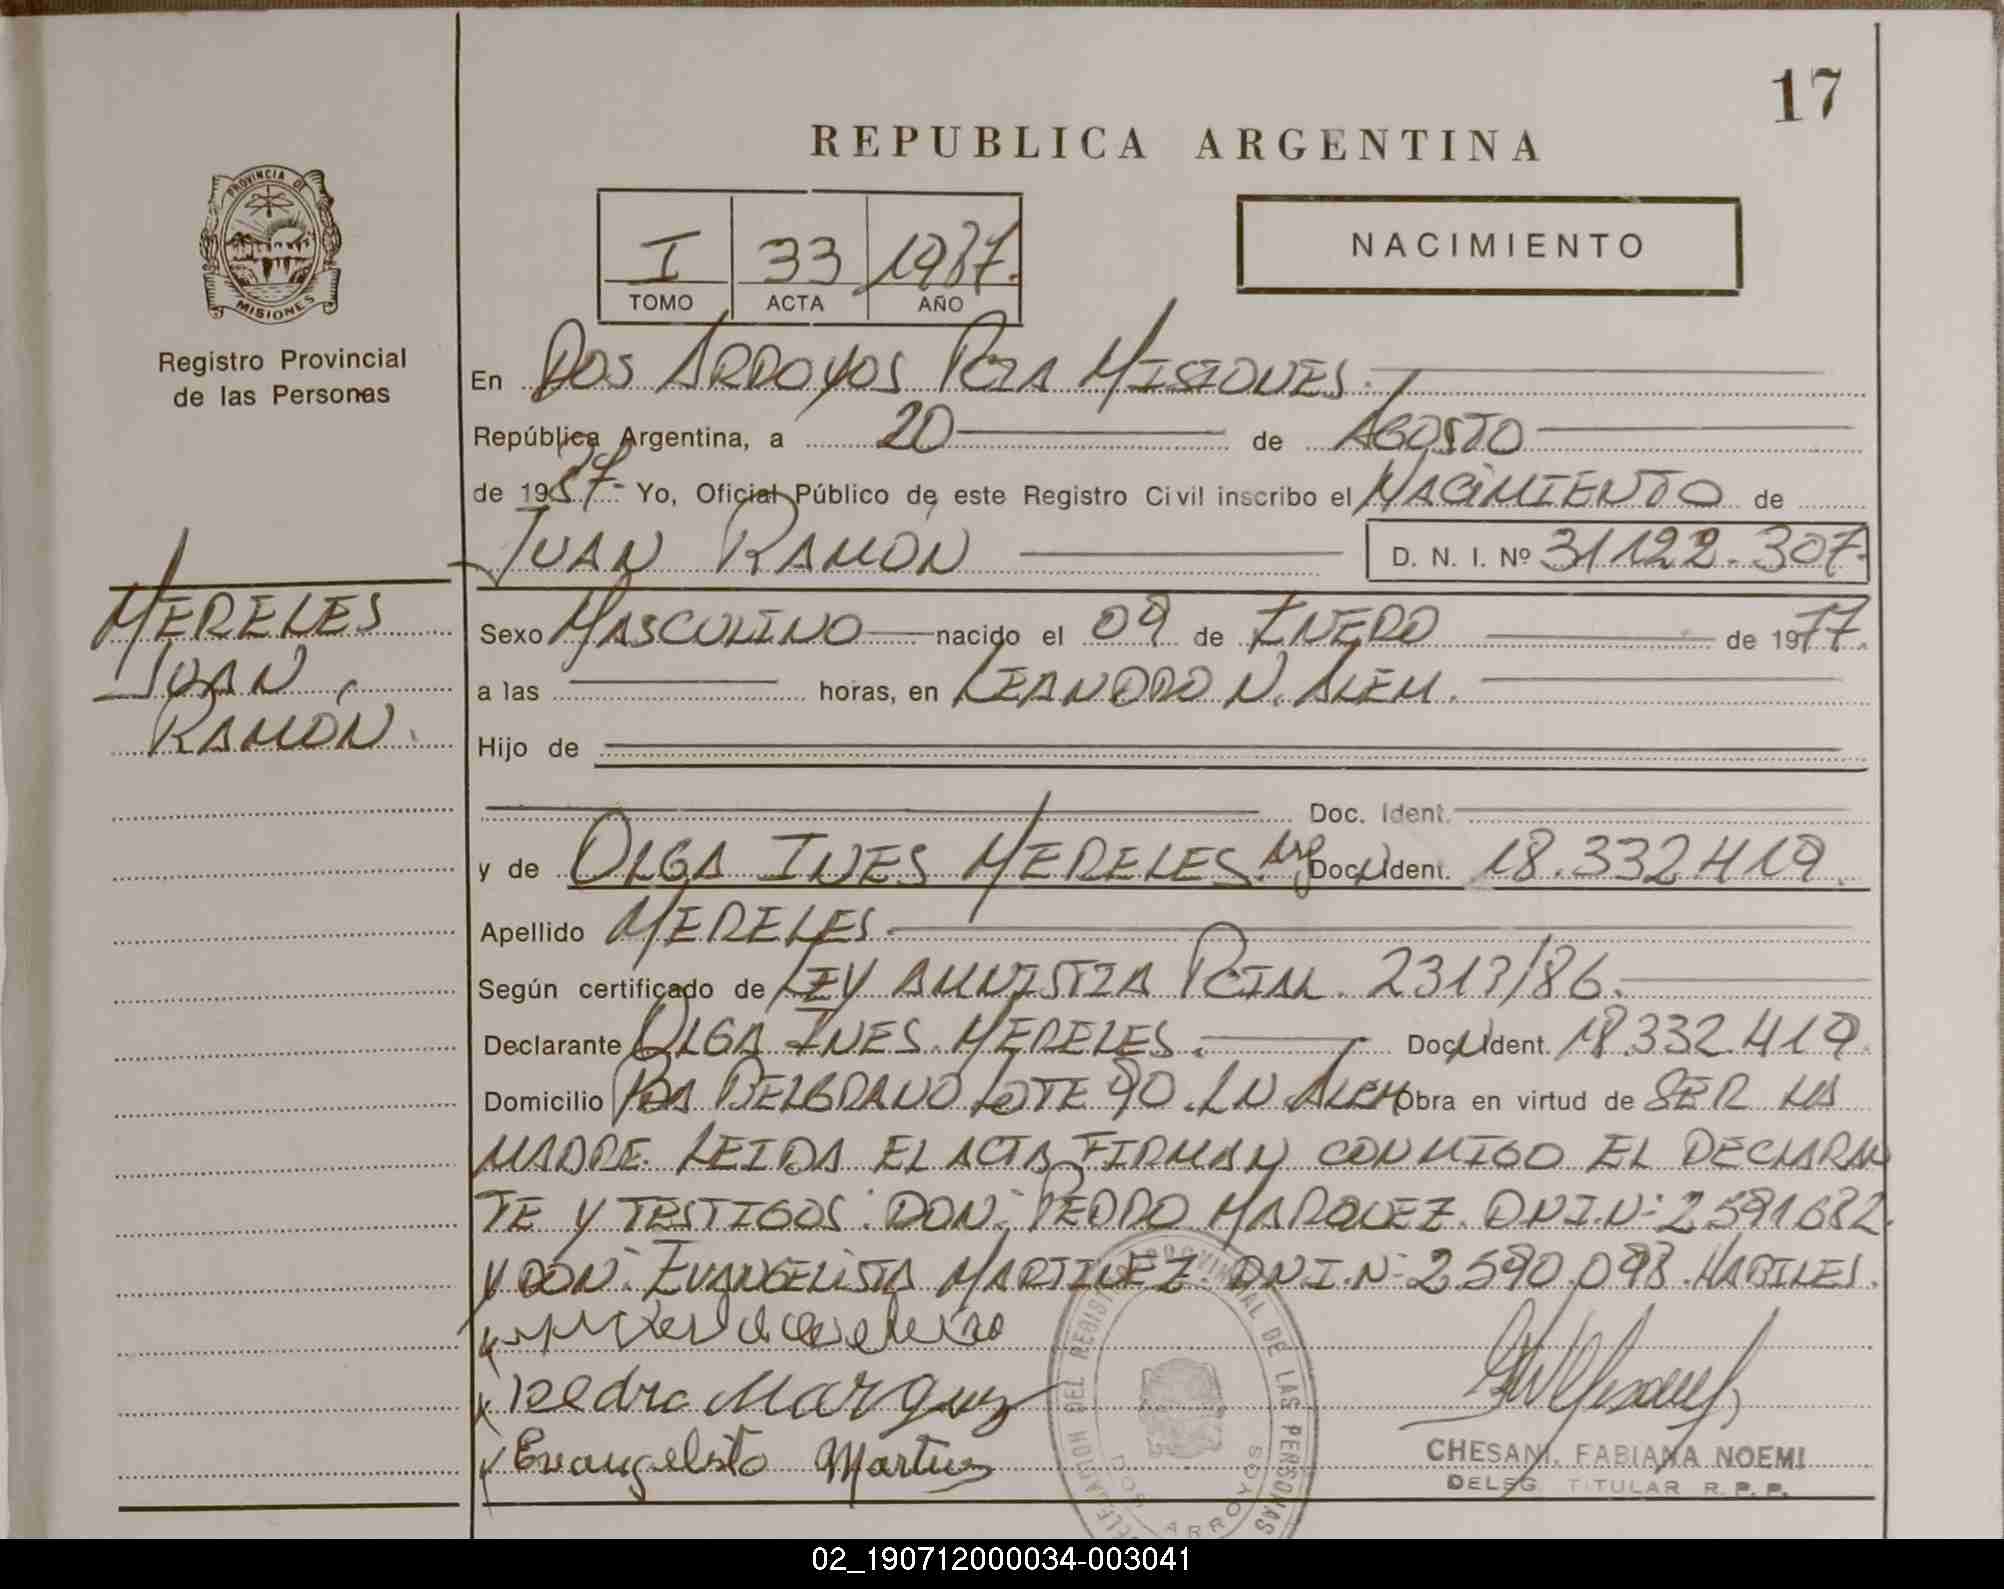 17
REPUBLICA ARGENTINA
PROVINCIA DE
MISIONES
Registro Provincial
de las Personas
I 33 1987.
TOMO ACTA AÑO
NACIMIENTO
En DOS ARROYOS PCIA MISIONES.
República Argentina, a 20 de AGOSTO
de 1987.- Yo, Oficial Público de este Registro Civil inscribo el NACIMIENTO de
JUAN RAMÓN D. N. I. Nº 31122.307.
MERELES
JUAN
RAMÓN.
Sexo MASCULINO nacido el 09 de ENERO de 1977.
a las horas, en LEANDRO N. ALEM.
Hijo de
Doc. Ident.
y de OLGA INES MERELES. Arg Doc. Ident. 18.332.419.
Apellido MERELES.
Según certificado de LEY AMNISTIA PCIAL. 2313/86.
Declarante OLGA INES MERELES. Doc. Ident. 18.332.419.
Domicilio PDA BELGRANO LOTE 90. L N ALEM Obra en virtud de SER LA
MADRE. LEIDA EL ACTA FIRMAN CONMIGO EL DECLARAN
TE Y TESTIGOS: DON: PEDRO MARQUEZ. DNI.N: 2591682.
Y DON: EVANGELISTA MARTINEZ. DNI.N: 2.590.093. HABILES.
Pedro Marquez
Evangelisto Martinez
DELEGACION DEL REGISTRO PROVINCIAL DE LAS PERSONAS
DOS ARROYOS
CHESANI, FABIANA NOEMI
DELEG. TITULAR R. P. P.
02_190712000034-003041